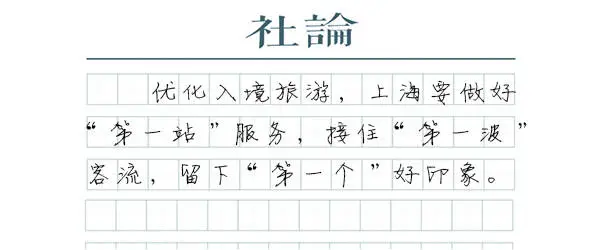 社論
优化入境旅游，上海要做好
“第一站”服务，接住“第一波”
客流，留下“第一个”好印象。